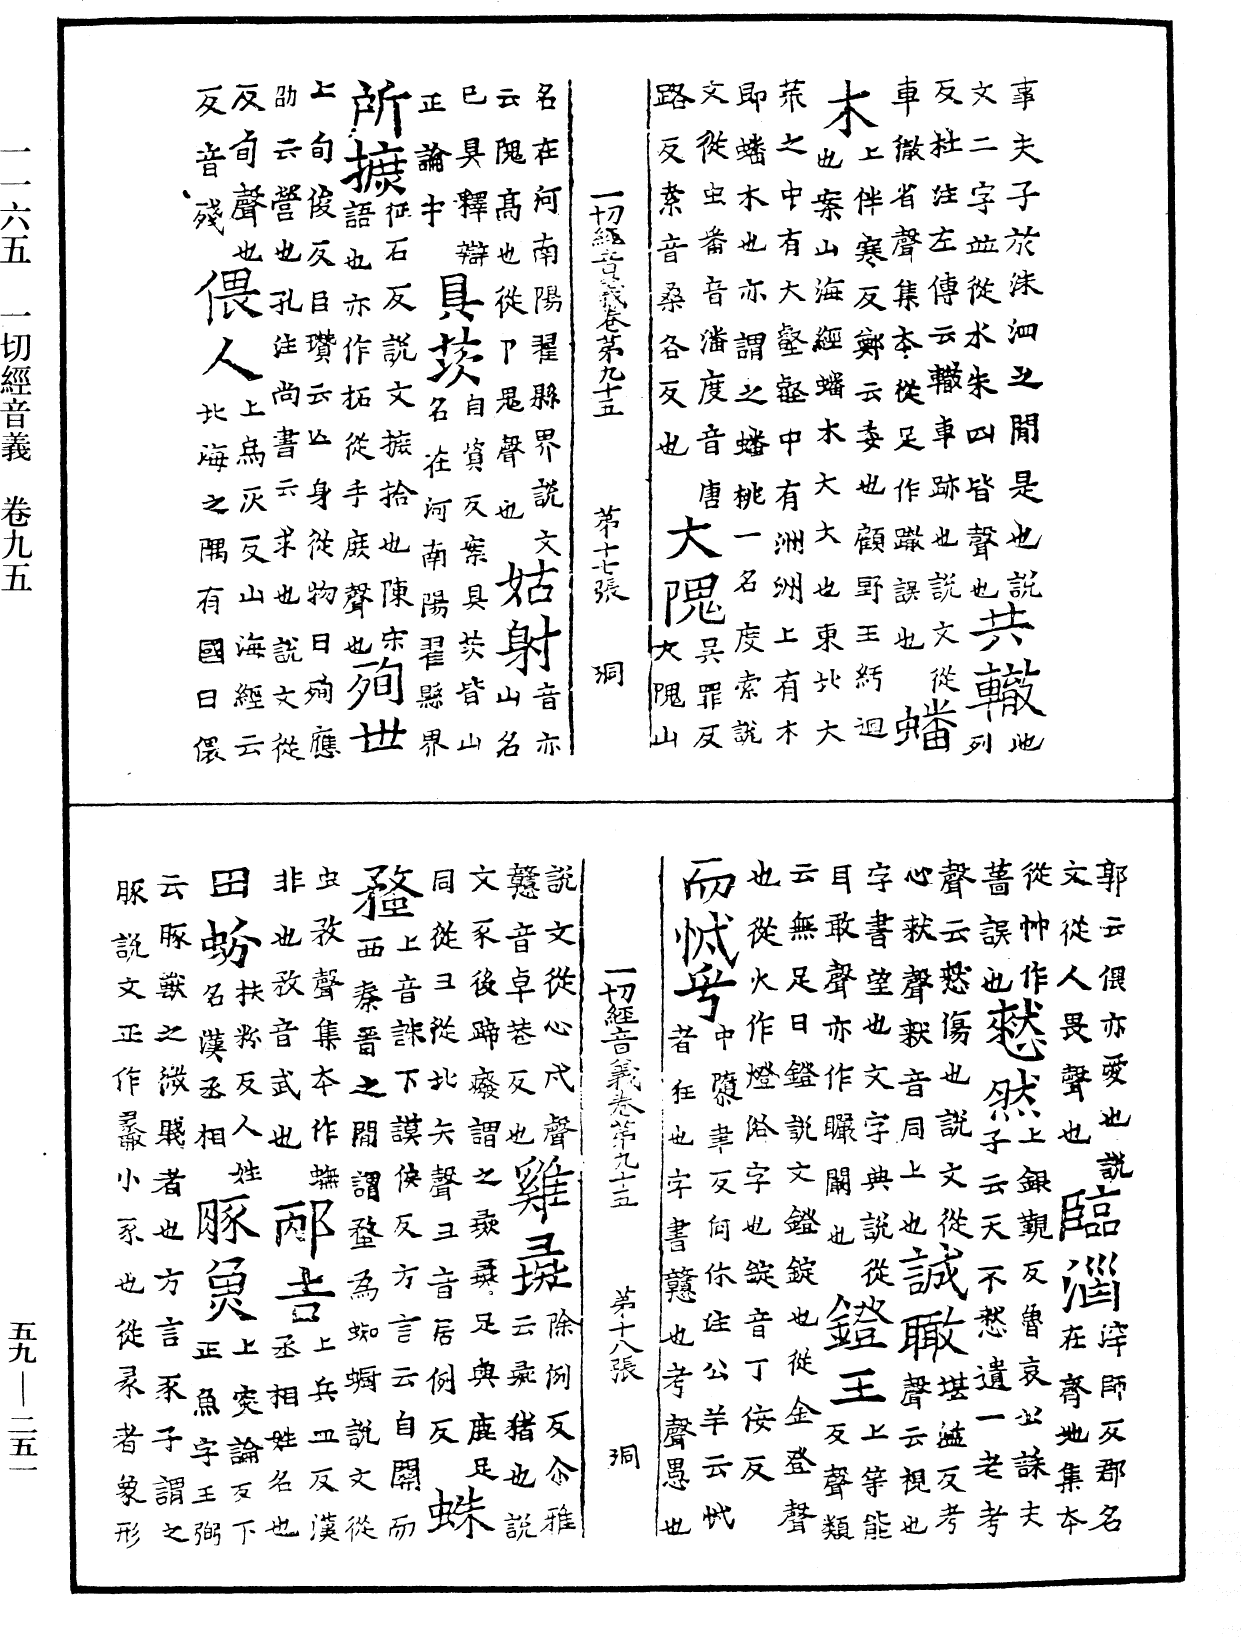 事夫子於洙泗之閒是也説
文二字並從水朱四皆聲也共轍池列
反杜注左傳云轍車跡也説文從
車徹省聲集本從足作蹴誤也蟠
木上伴寒反鄭云委也顧野王紆迴
也案山海經蟠木大大也東北大
荒之中有大壑壑中有洲洲上有木
即蟠木也亦謂之蟠桃一名度索説
文從虫番音潘度音唐
路反索音桑各反也大隗吳罪反大隗山
一切經音義卷第九十五 第十七張 洞
名在河南陽翟縣界説文
云隗高也從阝鬼聲也姑射音亦山名
已具釋辯
正論中具茨自資反案具茨皆山
名在河南陽翟縣界
所摭征石反説文摭拾也陳宋
語也亦作拓從手庶聲也殉世
上旬俊反臣瓚云亡身從物曰殉應
劭云營也孔注尚書云求也説文從
反旬聲也
反音殘偎人上烏灰反山海經云
北海之隅有國曰偎
郭云偎亦愛也説
文從人畏聲也臨淄滓師反郡名
在齊地集本
從艸作
葘誤也憖然上銀覲反魯哀公誄夫
子云天不憖遺一老考
聲云憖傷也説文從
心猌聲猌音同上也誠瞰堪濫反考
聲云視也
字書望也文字典説從
耳敢聲亦作矙闞也鐙王上等能
反聲類
云無足曰鐙説文鐙錠也從金登聲
也從火作燈俗字也錠音丁佞反
而怴乎中隳聿反何休注公羊云怴
者狂也字書戇也考聲愚也
一切經音義卷第九十五 第十八張 洞
説文從心戉聲
戇音卓巷反也雞彘除例反尒雅
云彘猪也説
文豕後蹄廢謂之彘彘足與鹿足
同從彑從北矢聲彑音居例反蛛
蝥上音誅下謨侯反方言云自關而
西秦晉之閒謂蝥為蜘蛛説文從
虫敄聲集本作蟱
非也敄音武也邴吉上兵皿反漢
丞相姓名也
田蚡扶粉反人姓
名漢丞相豚魚上突論反下
正魚字王弼
云豚獸之微賤者也方言豕子謂之
豚説文正作小豕也從彖者象形
一一六五 一切經音義 卷九五
五九—二五一